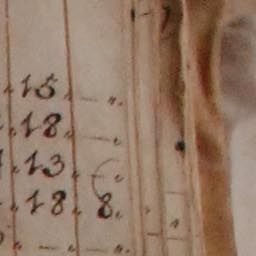 15. — ".
18. — ".
13. — ".
18. 8.
— ".